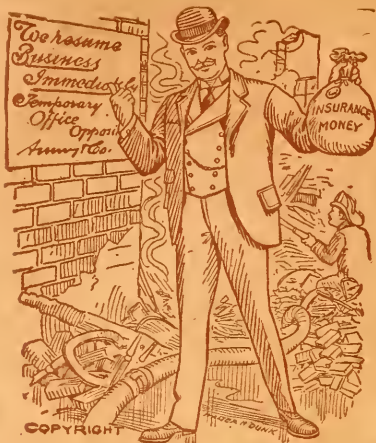 We resume
Business
Immediately
Temporary
Office
Opposite
& Co.
INSURANCE
MONEY
COPYRIGHT